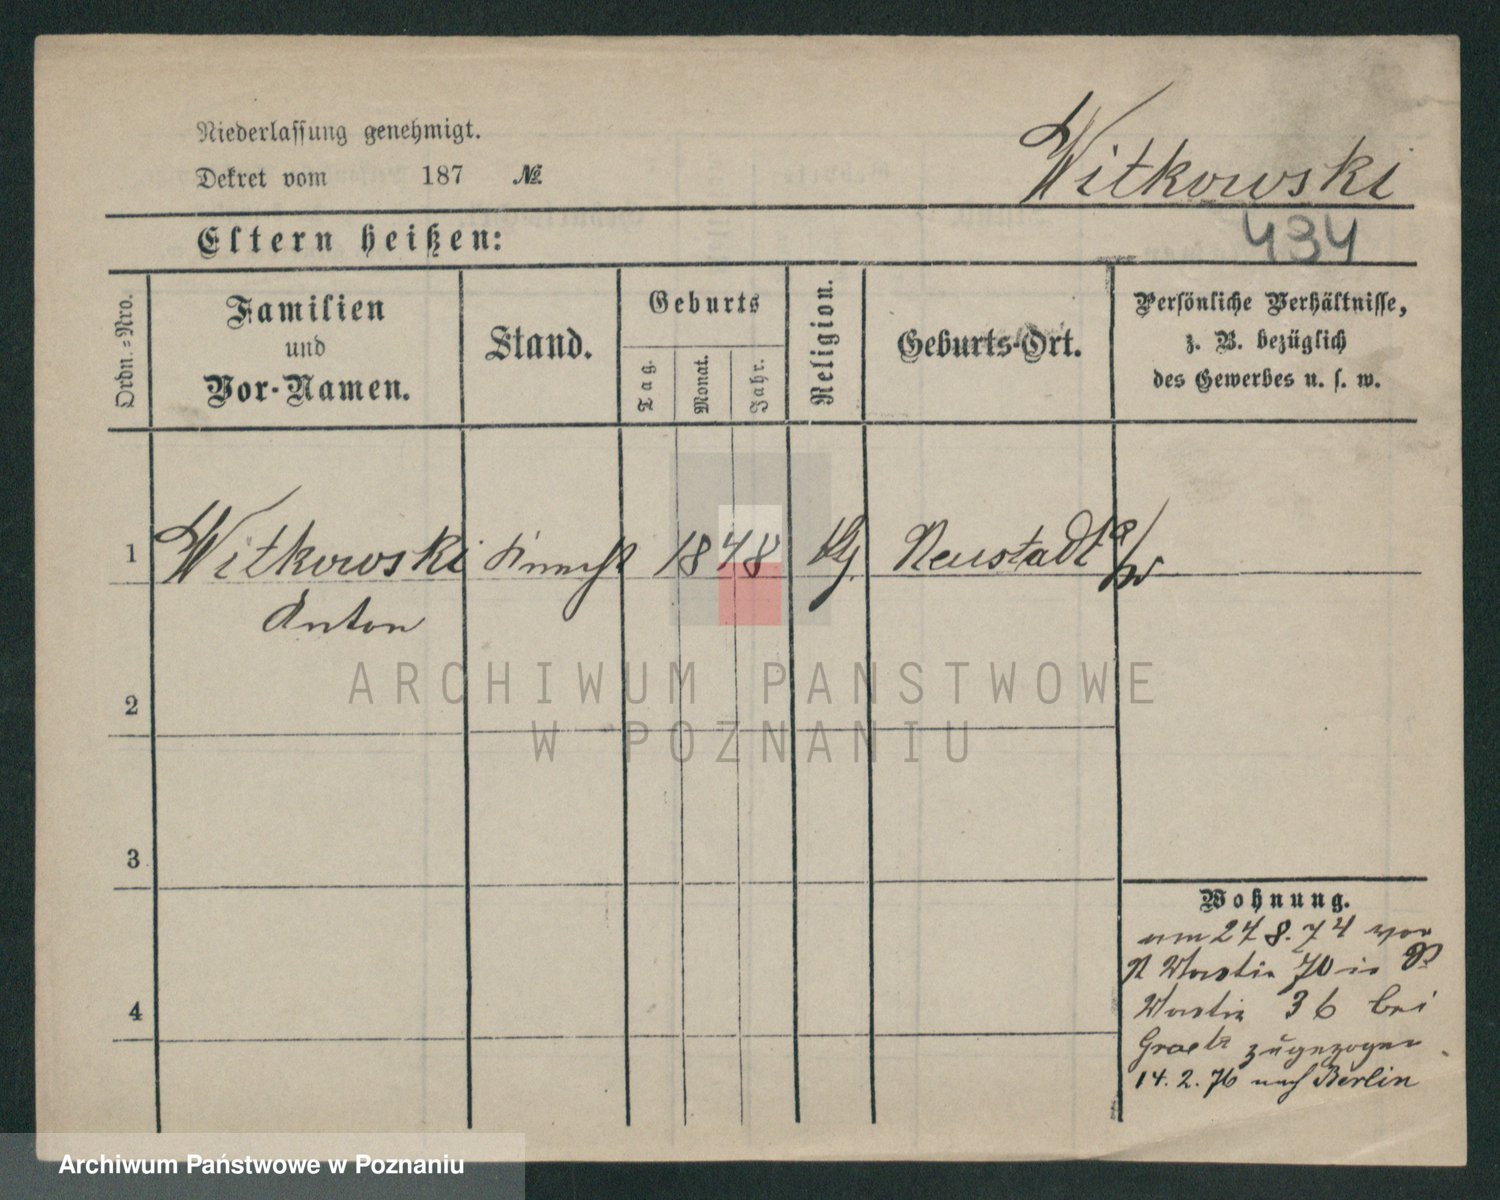 Niederlassung genehmigt.
Dekret vom 187 №
Witkowski
434
Eltern heißen:
Ordn.=Nro.
Familien
und
Vor-Namen.
Stand.
Geburts
Tag.
Monat.
Jahr.
Religion.
Geburts-Ort.
Persönliche Verhältnisse,
z. B. bezüglich
des Gewerbes u. s. w.
1 Witkowski Knecht 1848 Neustadt
Anton
2
3
4
ARCHIWUM PANSTWOWE
W POZNANIU
Wohnung.
am 24 8. 74 von
Martin 70 in
Martin 36 bei
Graetz zugezogen
14. 2. 76 nach Berlin
Archiwum Państwowe w Poznaniu